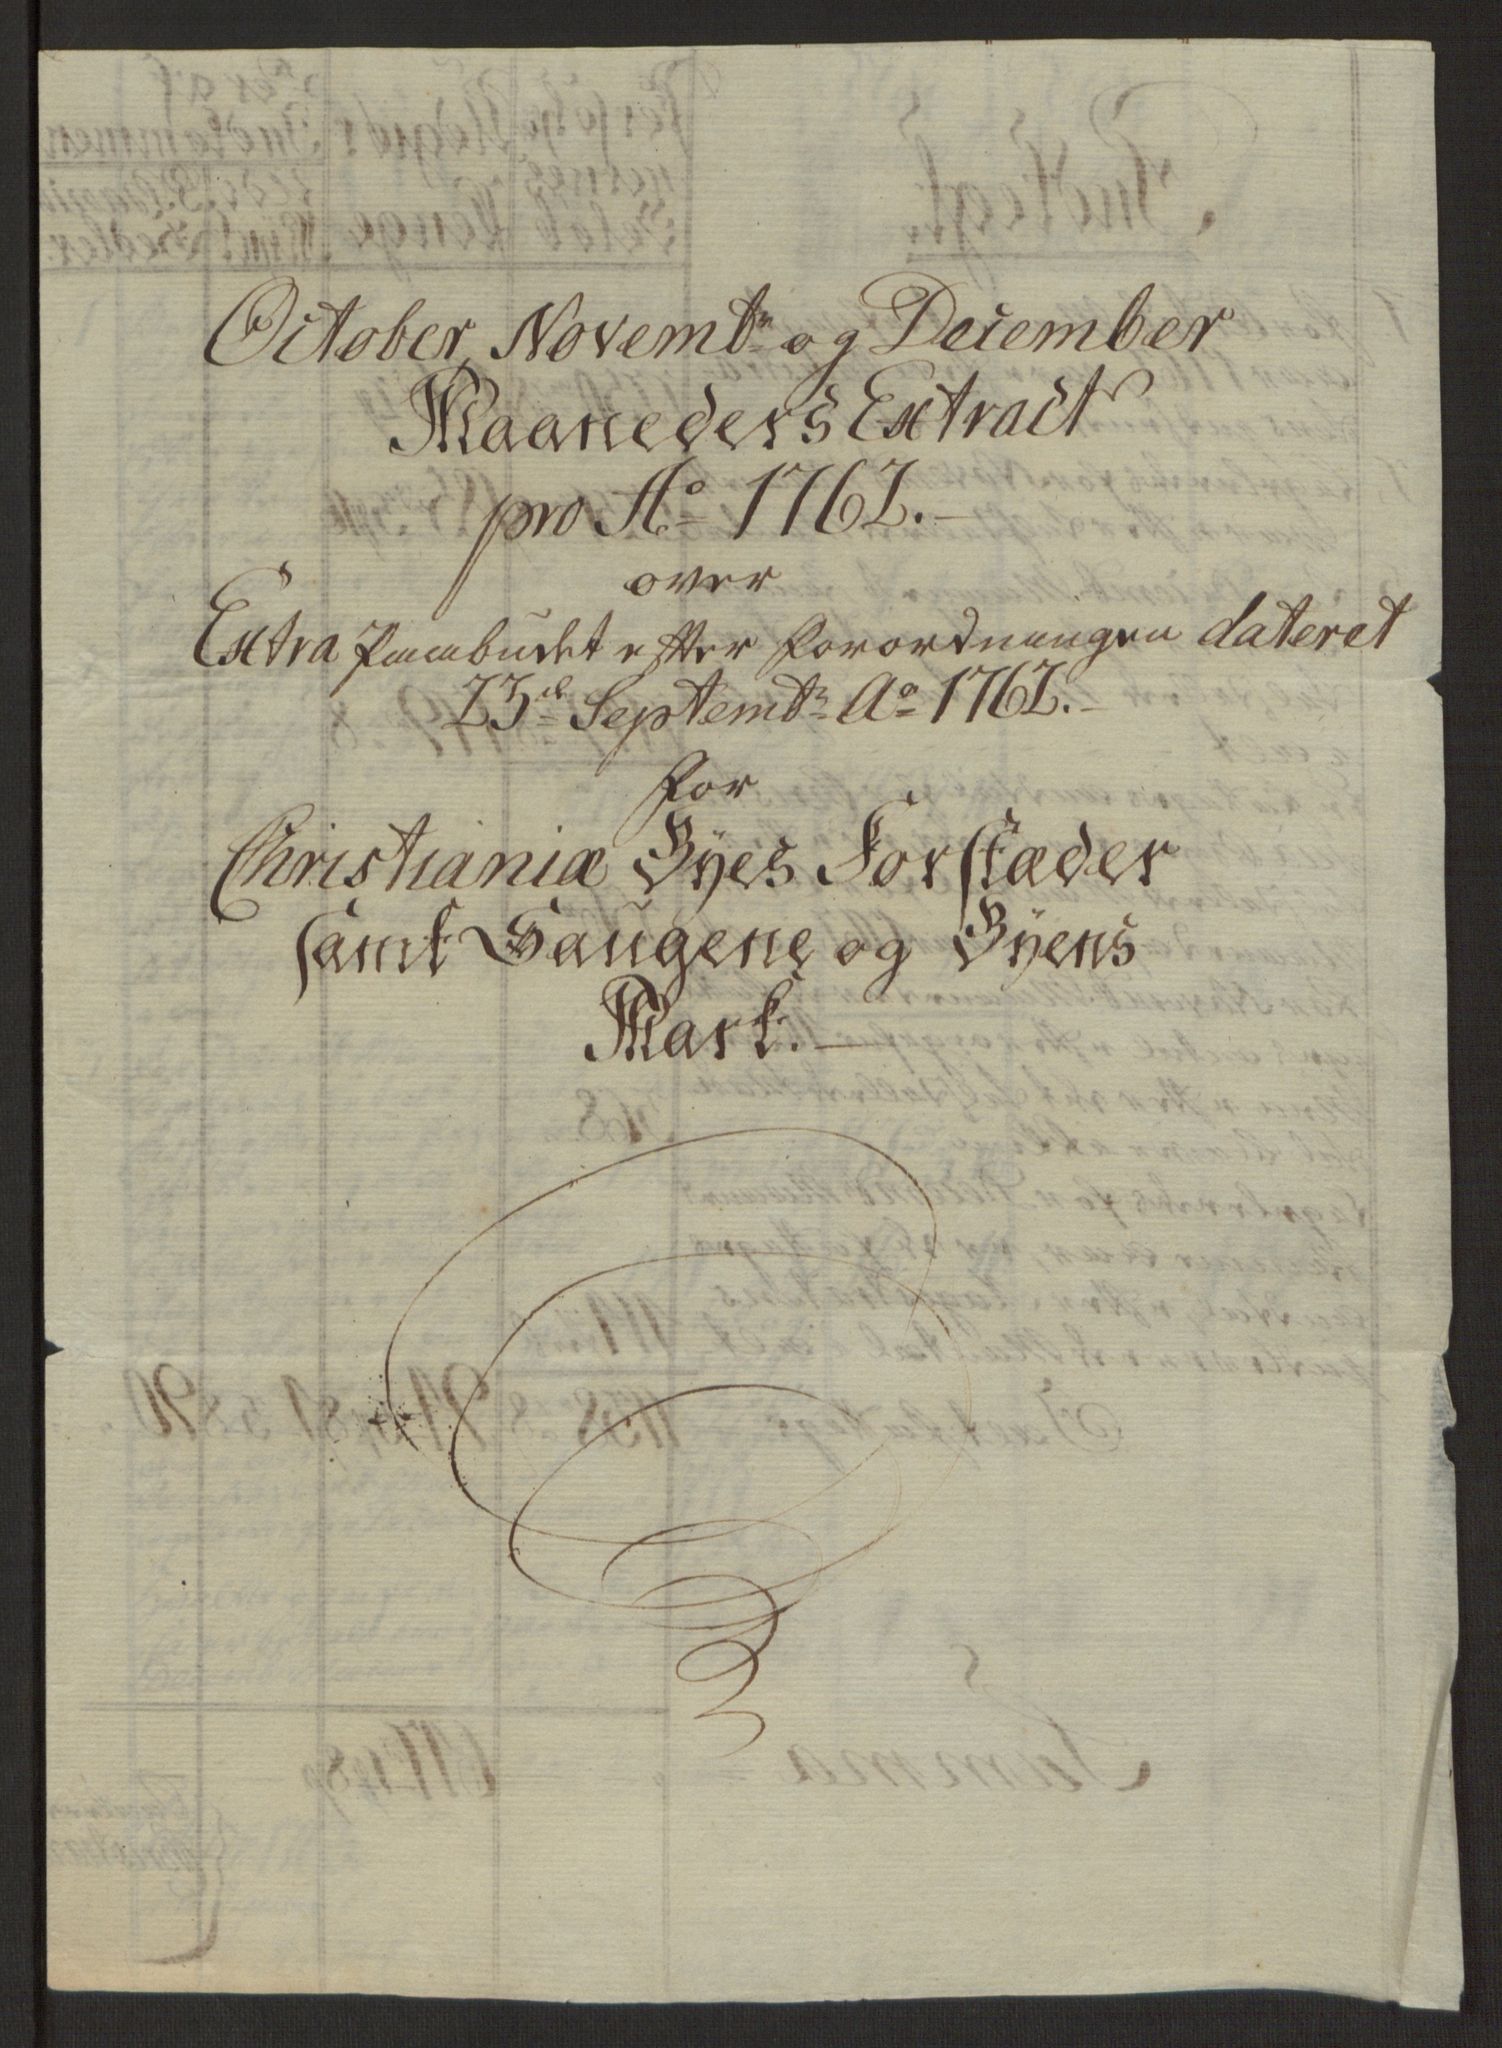 October, Novembr og December
Maaneders Extract
pro Ao 1762.
over
Extra Paabudet efter Forordningen dateret
23d Septembr Ao 1762.
for
Christianiæ Byes Forstæder
samt Saugene og Byens
Mark.